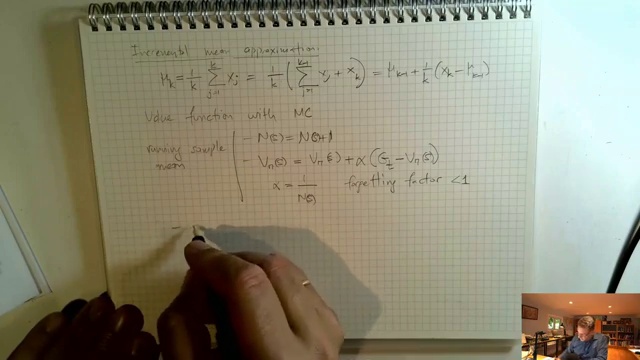 Incremental mean approximation:
μ_k = 1/k ∑_{j=1}^{k} x_j = 1/k ( ∑_{j=1}^{k-1} x_j + x_k ) = μ_{k-1} + 1/k ( x_k − μ_{k-1} )
Value function with MC
running sample mean
− N(s) = N(s)+1
− V_π(s) = V_π(s) + α ( G_t − V_π(s) )
α = 1/N(s) forgetting factor < 1
−